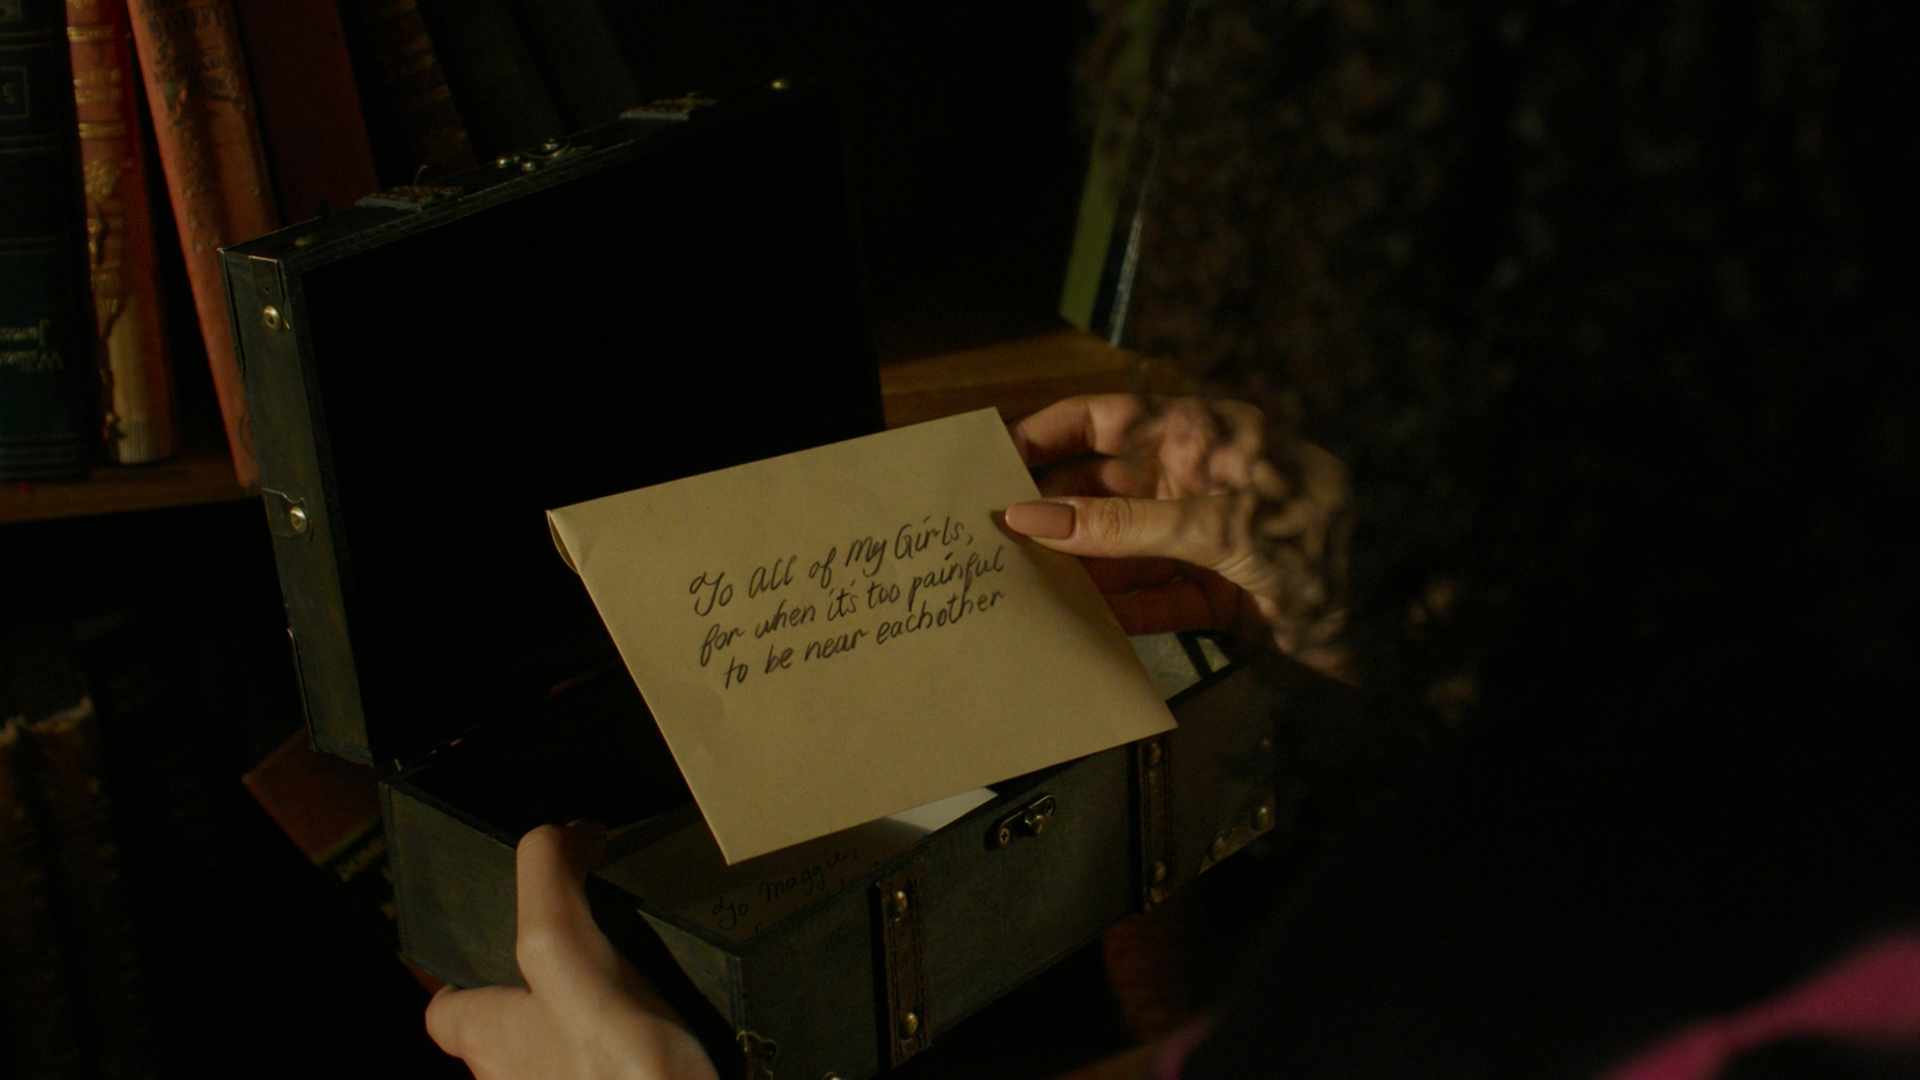 To All of My Girls,
for when it's too painful
to be near eachother
To Maggie,